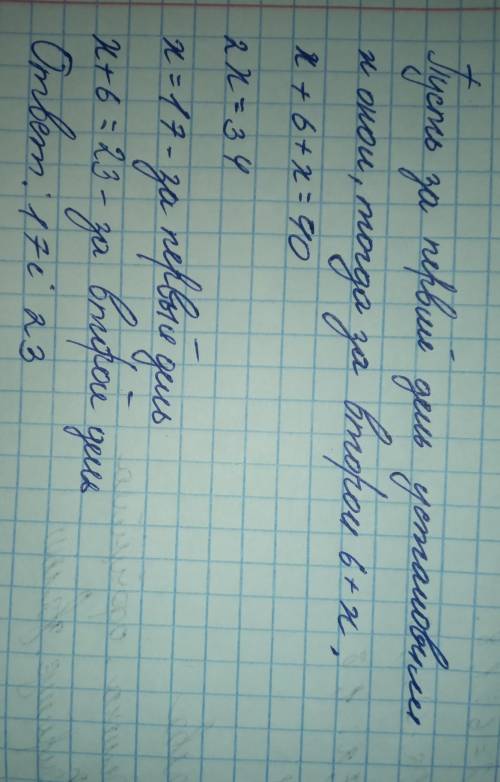 Пусть за первый день установили
x окон, тогда за второй 6 + x.
x + 6 + x = 40
2x = 34
x = 17 - за первый день
x + 6 = 23 - за второй день
Ответ: 17 i 23